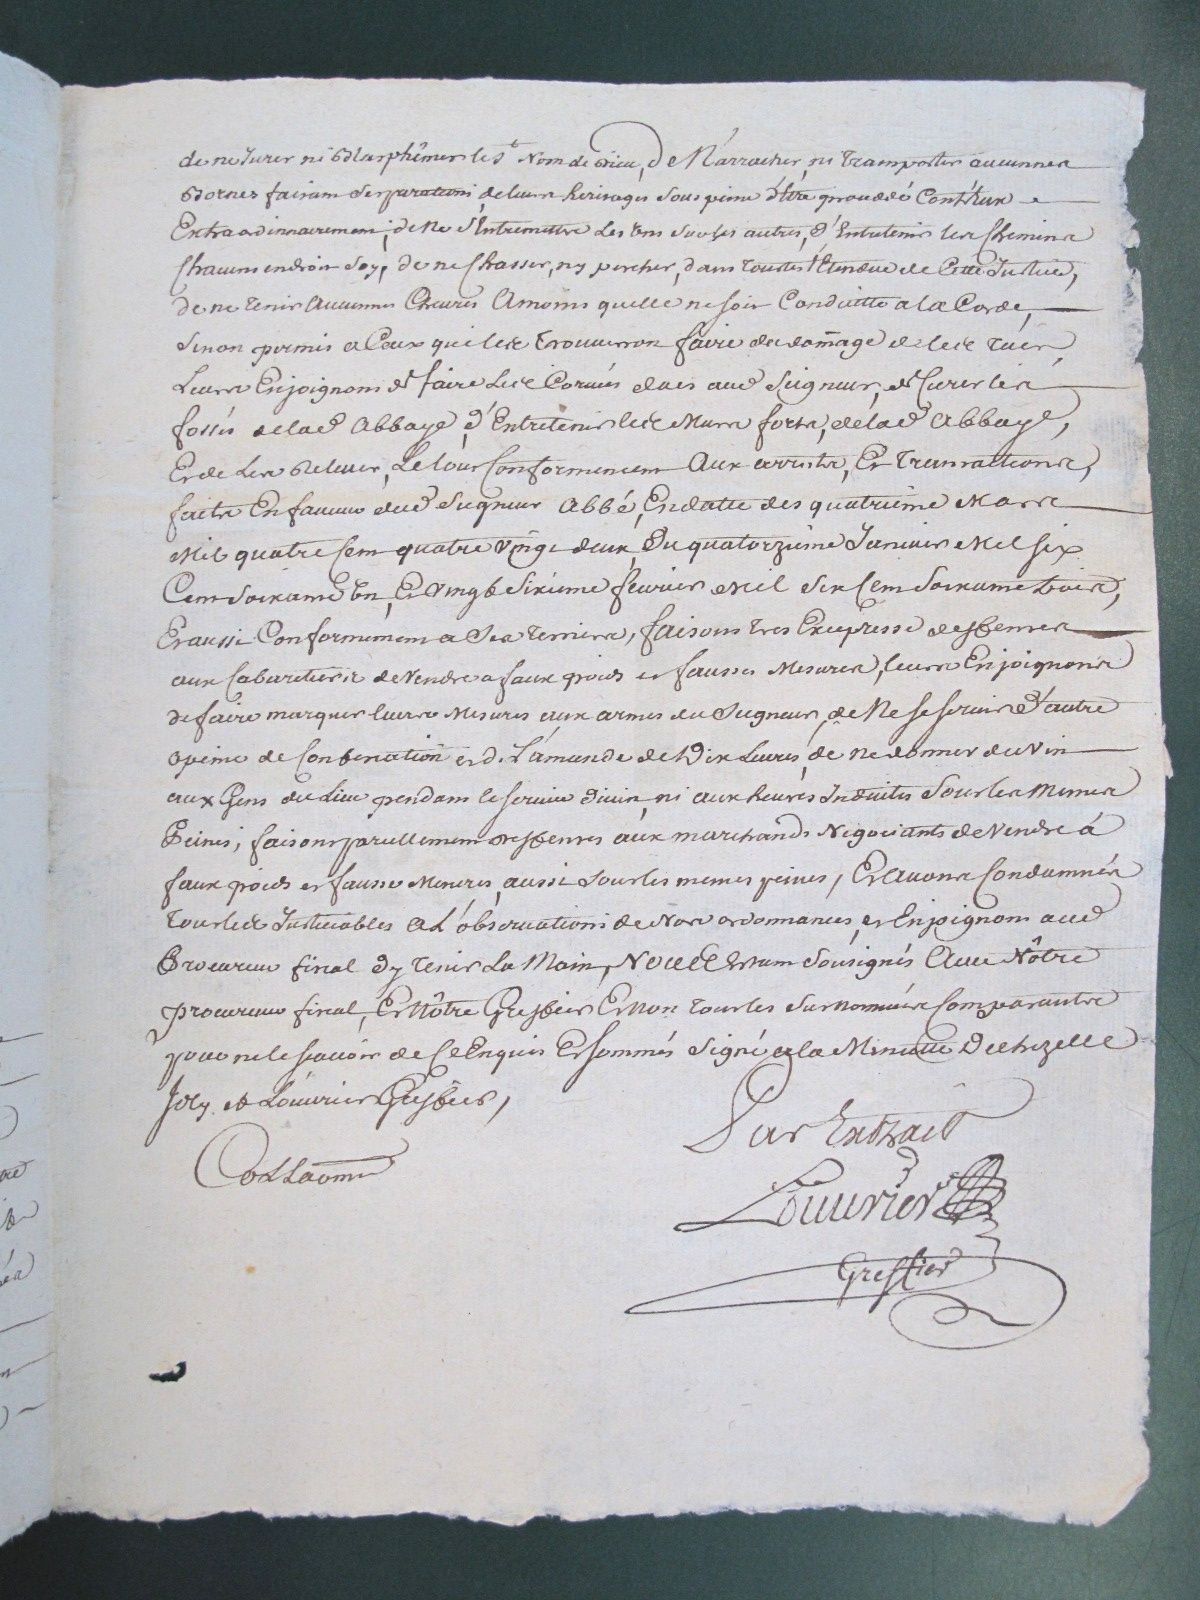 de ne Jurer ni Blasphêmer le St Nom de Dieu, de N'arracher, ni transporter aucunnes
Bornes faisant Separations de leurs heritages sous peine d'Etre procedé Contr'eux
Extraordinnairement, de Ne S'Entremettre Les uns sur les autres, d'Entretenir les Chemins
Chacun endroit Soy, de ne Chasser, ny pescher, dans toutes l'Etendue de Cette Justice,
de ne tenir Aucunnes Cheures Amoins quelle ne soit Conduitte a la Corde,
Sinon permis a Ceux qui les trouueront faire du domage de les tuer,
Leurs Enjoignons de faire les Coruées dues aud Seigneur, de Curer les
fossés de lad Abbaye, d'Entretenir les Murs forts, de lad Abbaye,
Et de Les Releuer, Le tout Conformement Aux arrests, Et transactions,
faites En faueur dud Seigneur Abbé, En datte des quatriéme Mars
Mil quatre Cent quatre Vingt deux, Du quatorziéme Januier Mil six
Cent Soixante Un, Et Vingt Sixiéme feurier Mil Six Cent Soixante trois,
Et aussi Conformément a Ses terriers, faisons tres Expresse deffences
aux Cabaretiers de Vendre a faux poids et fausses Mesures, leurs Enjoignons
de faire marquer leurs Mesures aux armes du Seigneur, de Ne se seruir d'autre
a peine de Confiscation et de L'amande de Dix Liures, de ne donner du Vin
aux Gens du Lieu pendant le seruice diuin, ni aux heures Induites Sous les Mêmes
Peines, faisons pareillement deffences aux marchands Négociants de Vendre á
faux poids et fausses Mesures, aussi sous les memes peines, Et Auons Condamnés
tous les Justiciables a L'obseruations de Nos ordonnances, et Enjoignons aud
Procureur fiscal d'y tenir La Main, Nous Sousignés Auec Nôtre
procureur fiscal, Et Nôtre Greffier Et Non tous les surnommés Comparants
pour ne le sçauoir de Ce Enquis Et Sommés Signé a la Minutte Dechezelle
Joly et Louurier Greffier,
Par Extrait
Collaonné
Louurier
Greffier